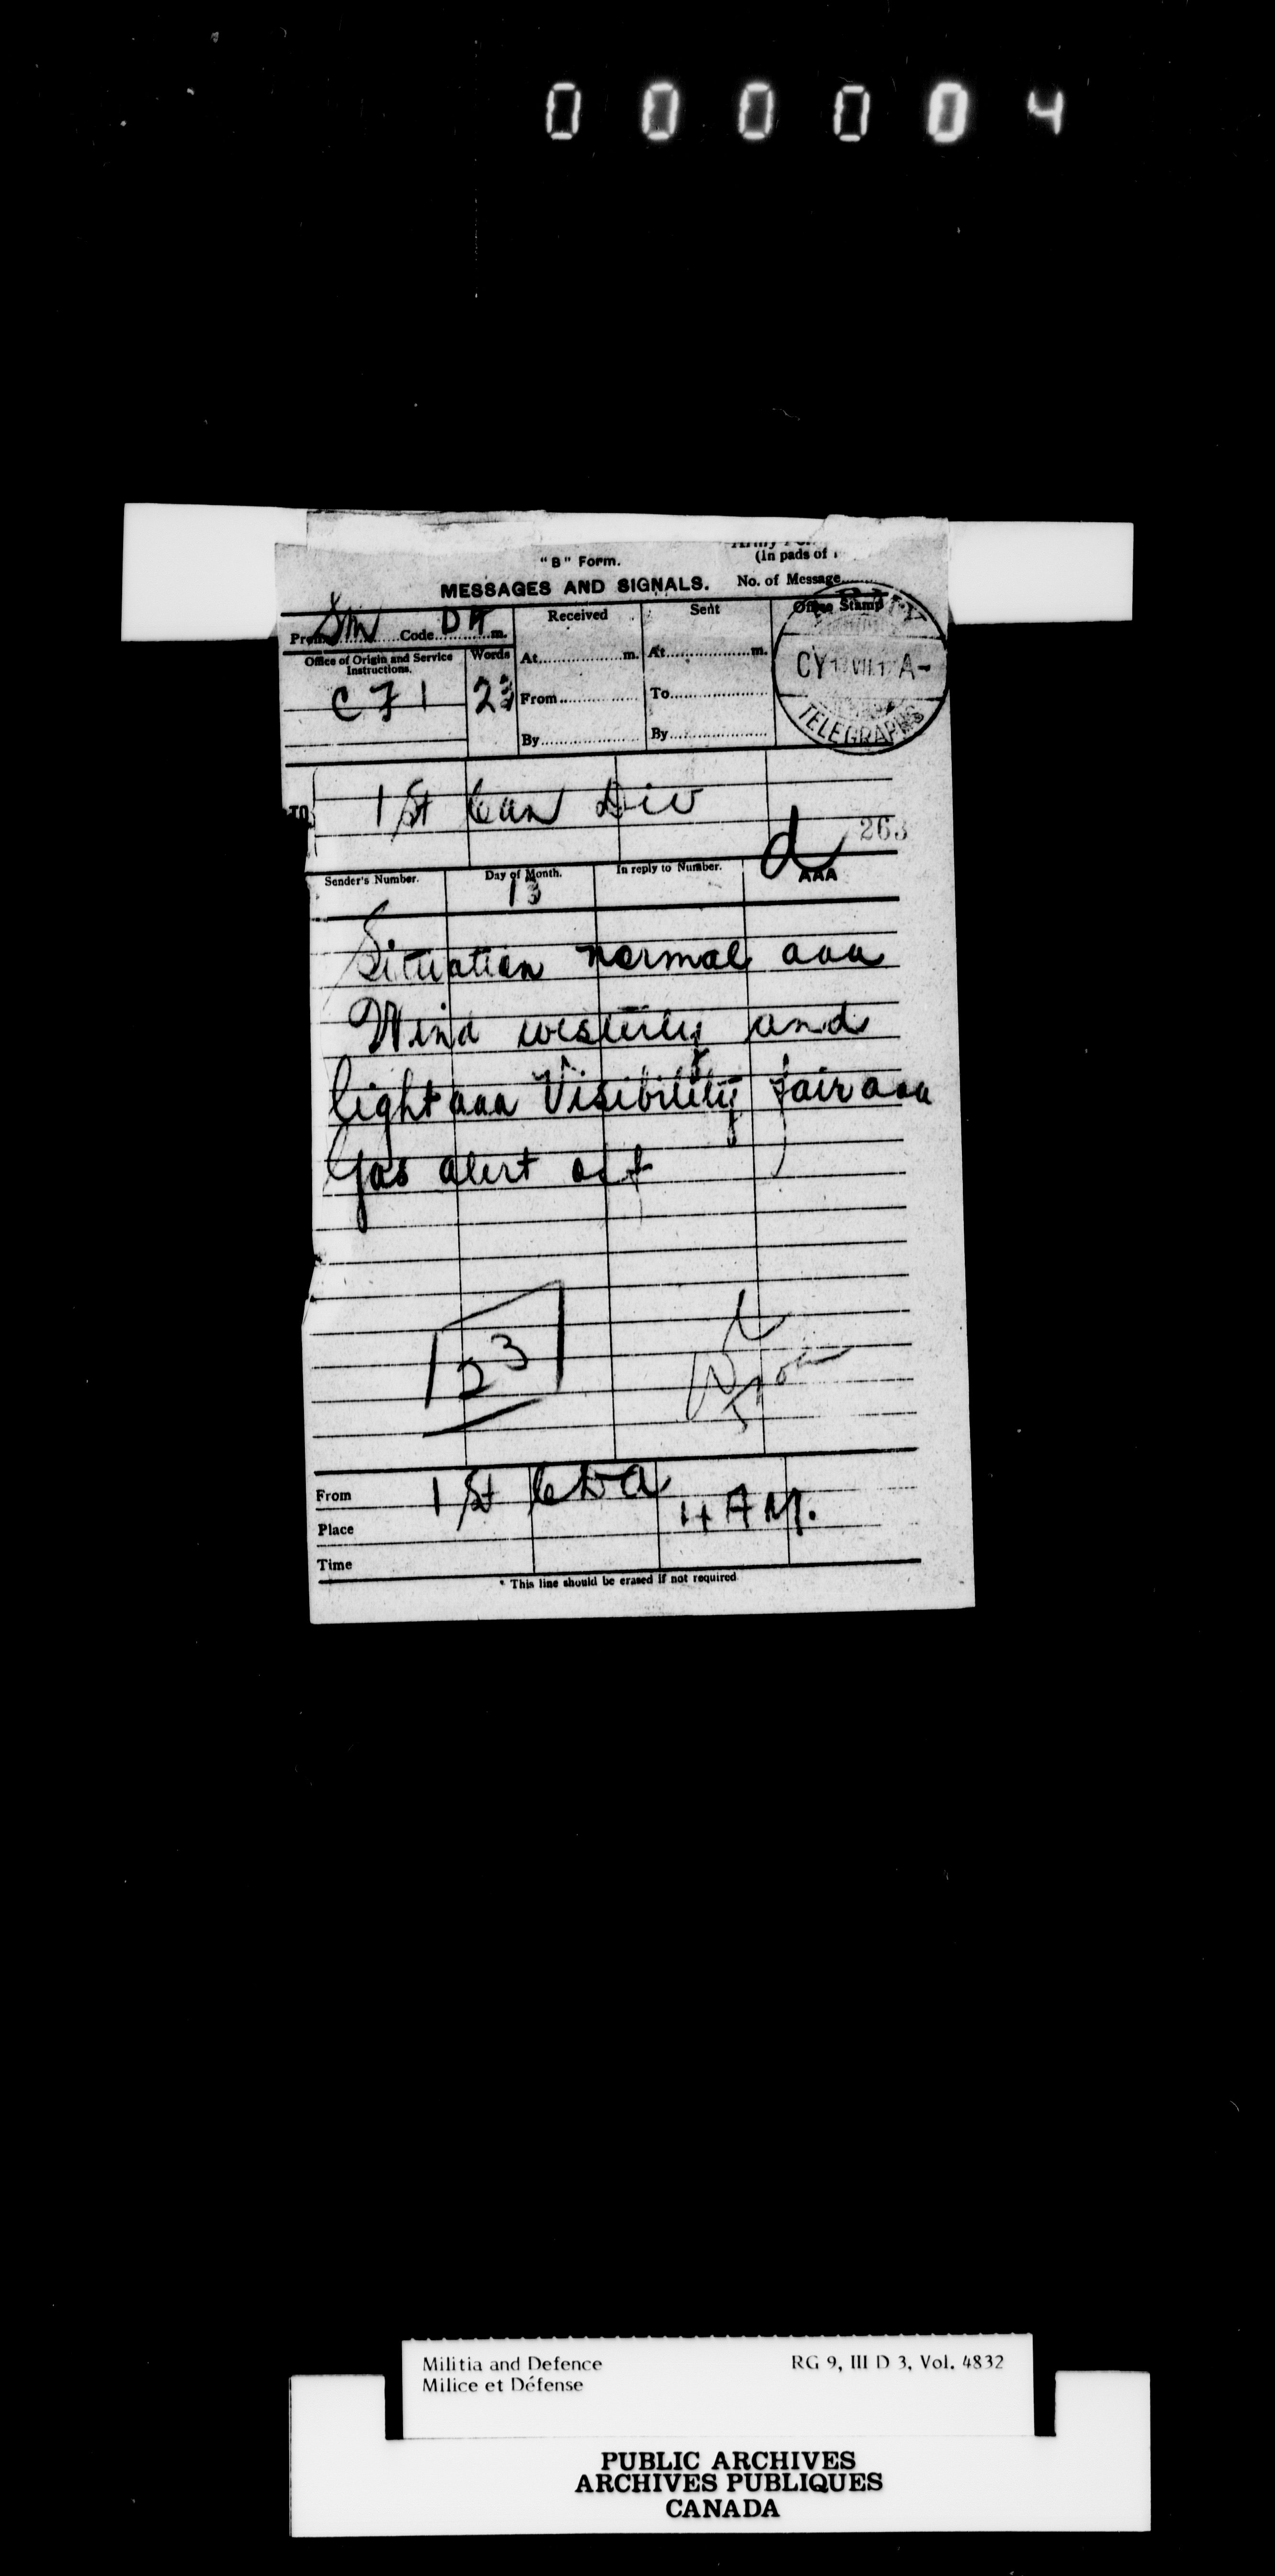 000004
Army
"B" Form.
(In pads of
MESSAGES AND SIGNALS.
No. of Message
Prefix SM Code DA m.
Received
Sent
Office Stamp
Office of Origin and Service Instructions.
Words
At m.
At m.
CY VII.1 A-
C71
23
From
To
By
By
TELEGRAPHS
TO
1st Can Div
263
Sender's Number.
Day of Month.
In reply to Number.
AAA
13
Situation normal aaa
Wind westerly and
light aaa Visibility fair aaa
Gas alert off
23
From
1st CDA
4 AM.
Place
Time
* This line should be erased if not required
Militia and Defence
RG 9, III D 3, Vol. 4832
Milice et Défense
PUBLIC ARCHIVES
ARCHIVES PUBLIQUES
CANADA